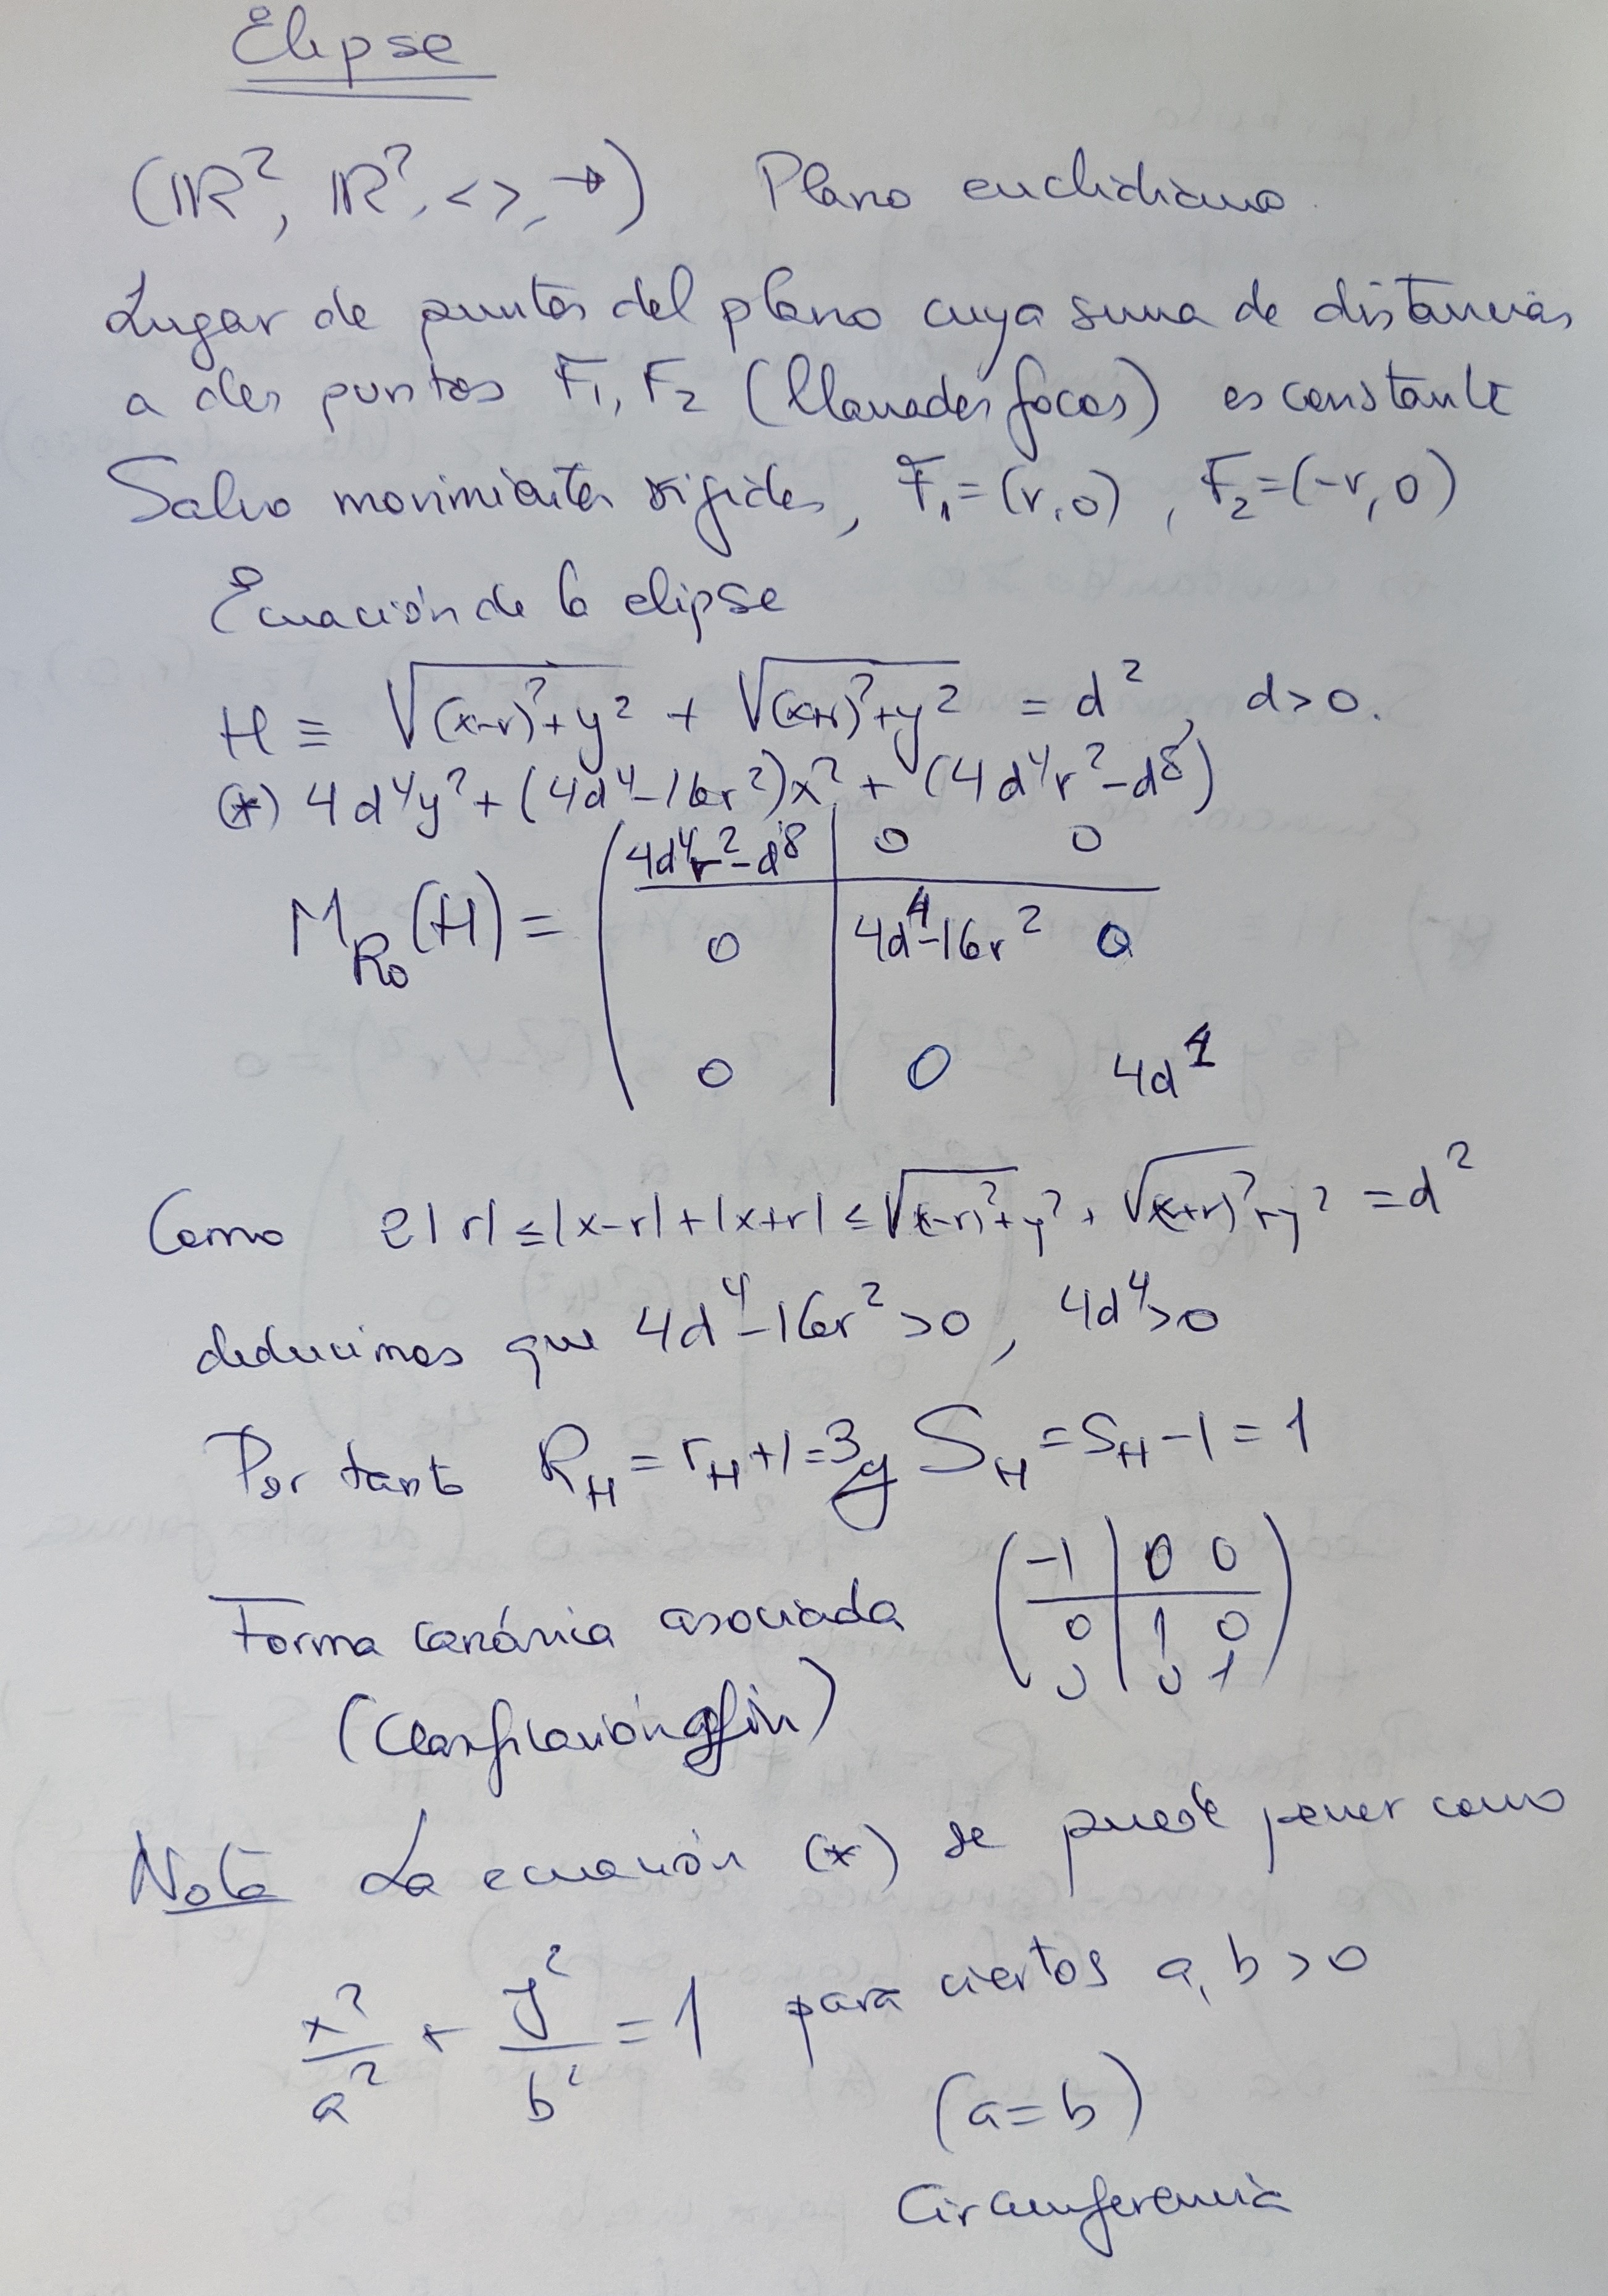 Elipse
(ℝ², ℝ², < >, →) Plano euclidiano.
Lugar de puntos del plano cuya suma de distancias
a dos puntos F₁, F₂ (llamados focos) es constante
Salvo movimientos rígidos, F₁=(r,0), F₂=(-r,0)
Ecuación de la elipse
H ≡ √((x-r)²+y²) + √((x+r)²+y²) = d², d>0.
(*) 4d⁴y²+(4d⁴-16r²)x²+(4d⁴r²-d⁸)
4d⁴r²-d⁸ | 0 0
M_R₀(H) = 0 | 4d⁴-16r² 0
0 | 0 4d⁴
Como 2|r| ≤ |x-r|+|x+r| ≤ √((x-r)²+y²) + √((x+r)²+y²) = d²
deducimos que 4d⁴-16r²>0, 4d⁴>0
Por tanto R_H = r_H+1=3 y S_H = s_H-1=1
Forma canónica asociada (-1 | 0 0
0 | 1 0
0 | 0 1)
(Clasificación afín)
Nota La ecuación (*) se puede poner como
x²/a² + y²/b² = 1 para ciertos a, b > 0
(a=b)
Circunferencia